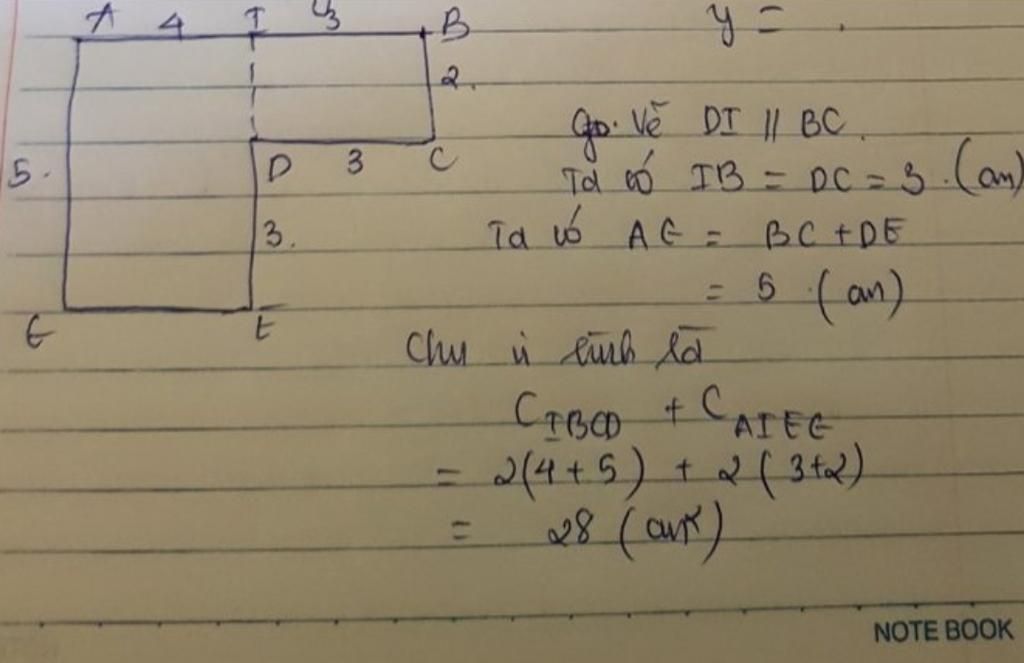 A 4 I 3 B
y = .
2.
Vẽ DI // BC.
D 3 C
5.
Ta có IB = DC = 3. (cm)
3.
Ta có AG = BC + DE
= 5. (cm)
G E
Chu vi hình là
C_IBCD + C_AIEG
= 2(4+5) + 2(3+2)
= 28 (cm)
NOTE BOOK